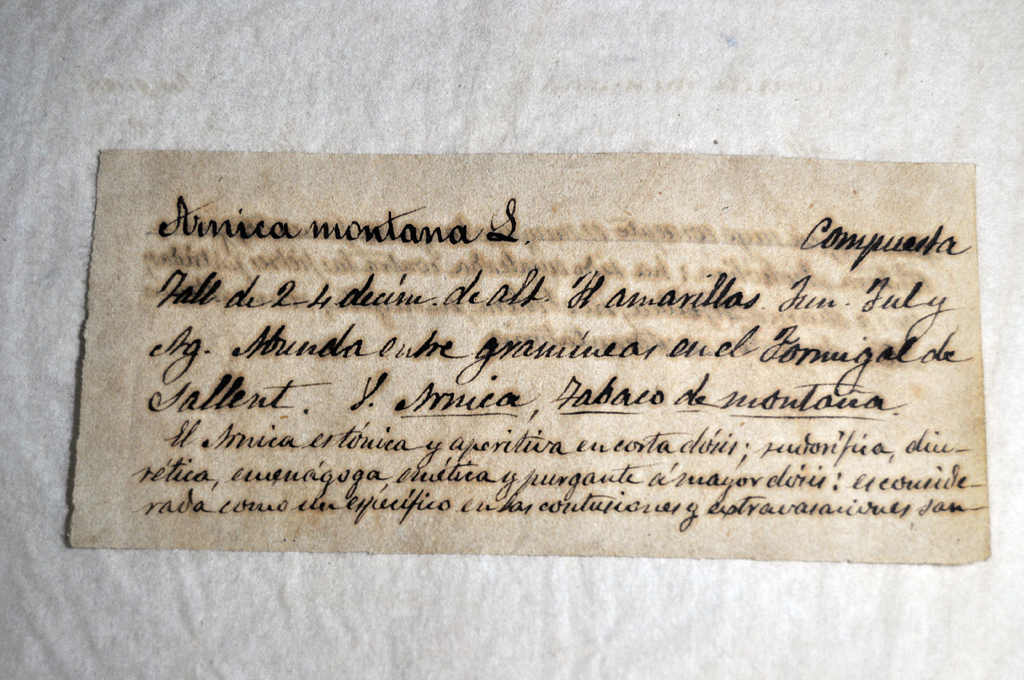 Arnica montana L. Compuesta
Tall. de 2-4 decím. de alt. Fl. amarillas. Jun. Jul y
Ag. Abunda entre gramíneas en el Formigal de
Sallent. V. Arnica, Tabaco de montaña.
El Arnica es tónica y aperitiva en corta dósis; sudorífica, diu-
rética, emenágoga, emética y purgante á mayor dósis: es conside-
rada como un específico en las contusiones y extravasaciones san-